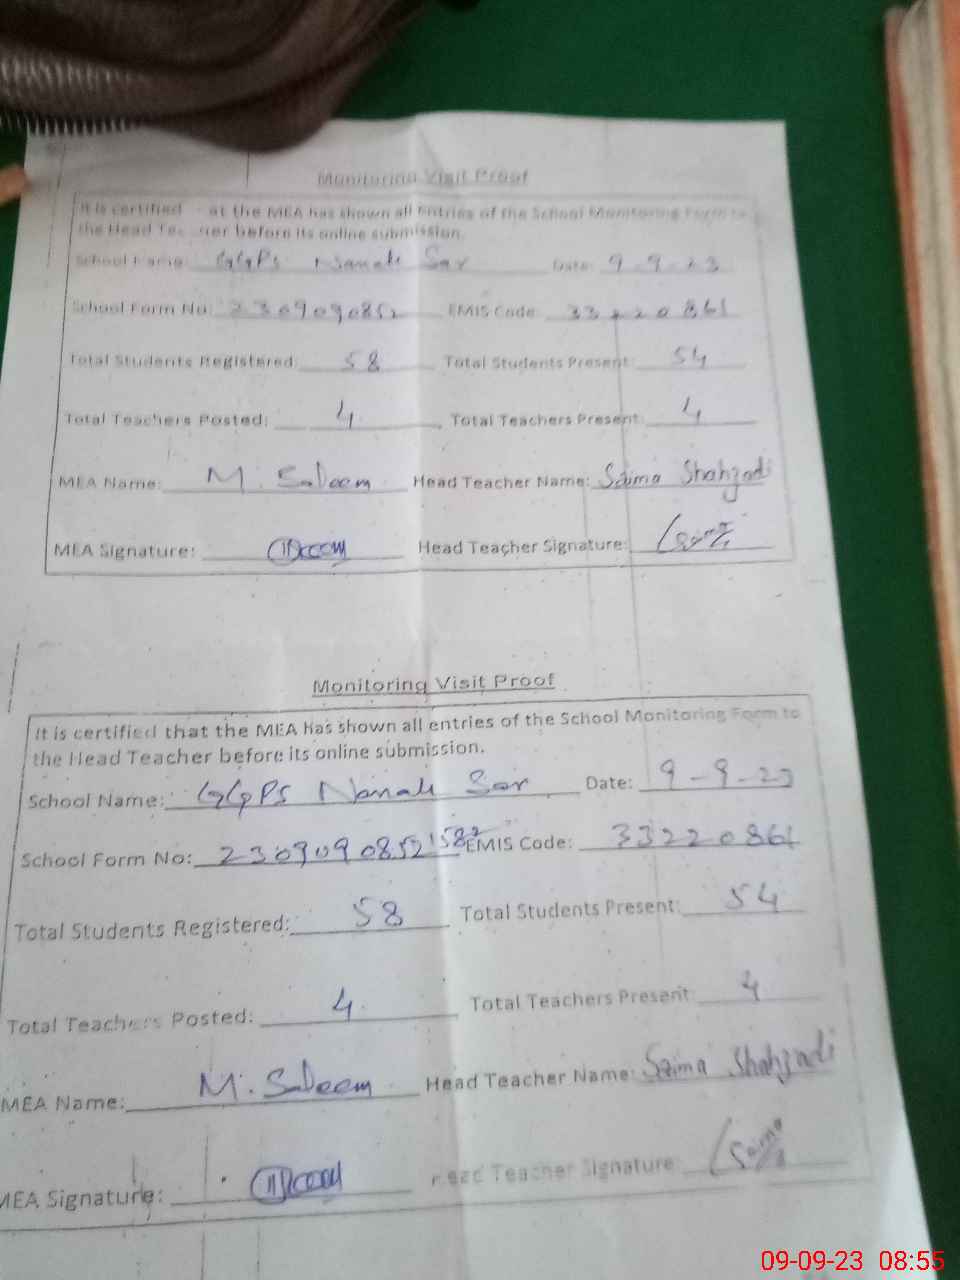 Monitoring Visit Proof
It is certified at the MEA has shown all entries of the School Monitoring Form to
the Head before its online submission.
School Name: GGPS Nanak Sar Date: 9-9-23
School Form No: 2309090852 EMIS Code: 33220861
Total Students Registered: 58 Total Students Present: 54
Total Teachers Posted: 4 Total Teachers Present: 4
MEA Name: M. Saleem Head Teacher Name: Saima Shahzadi
MEA Signature: Head Teacher Signature: Saima
Monitoring Visit Proof
It is certified that the MEA has shown all entries of the School Monitoring Form to
the Head Teacher before its online submission.
School Name: GGPS Nanak Sar Date: 9-9-23
School Form No: 2309090852 1582 EMIS Code: 33220861
Total Students Registered: 58 Total Students Present: 54
Total Teachers Posted: 4 Total Teachers Present: 4
MEA Name: M. Saleem Head Teacher Name: Saima Shahzadi
MEA Signature: Head Teacher Signature: Saima
09-09-23 08:55